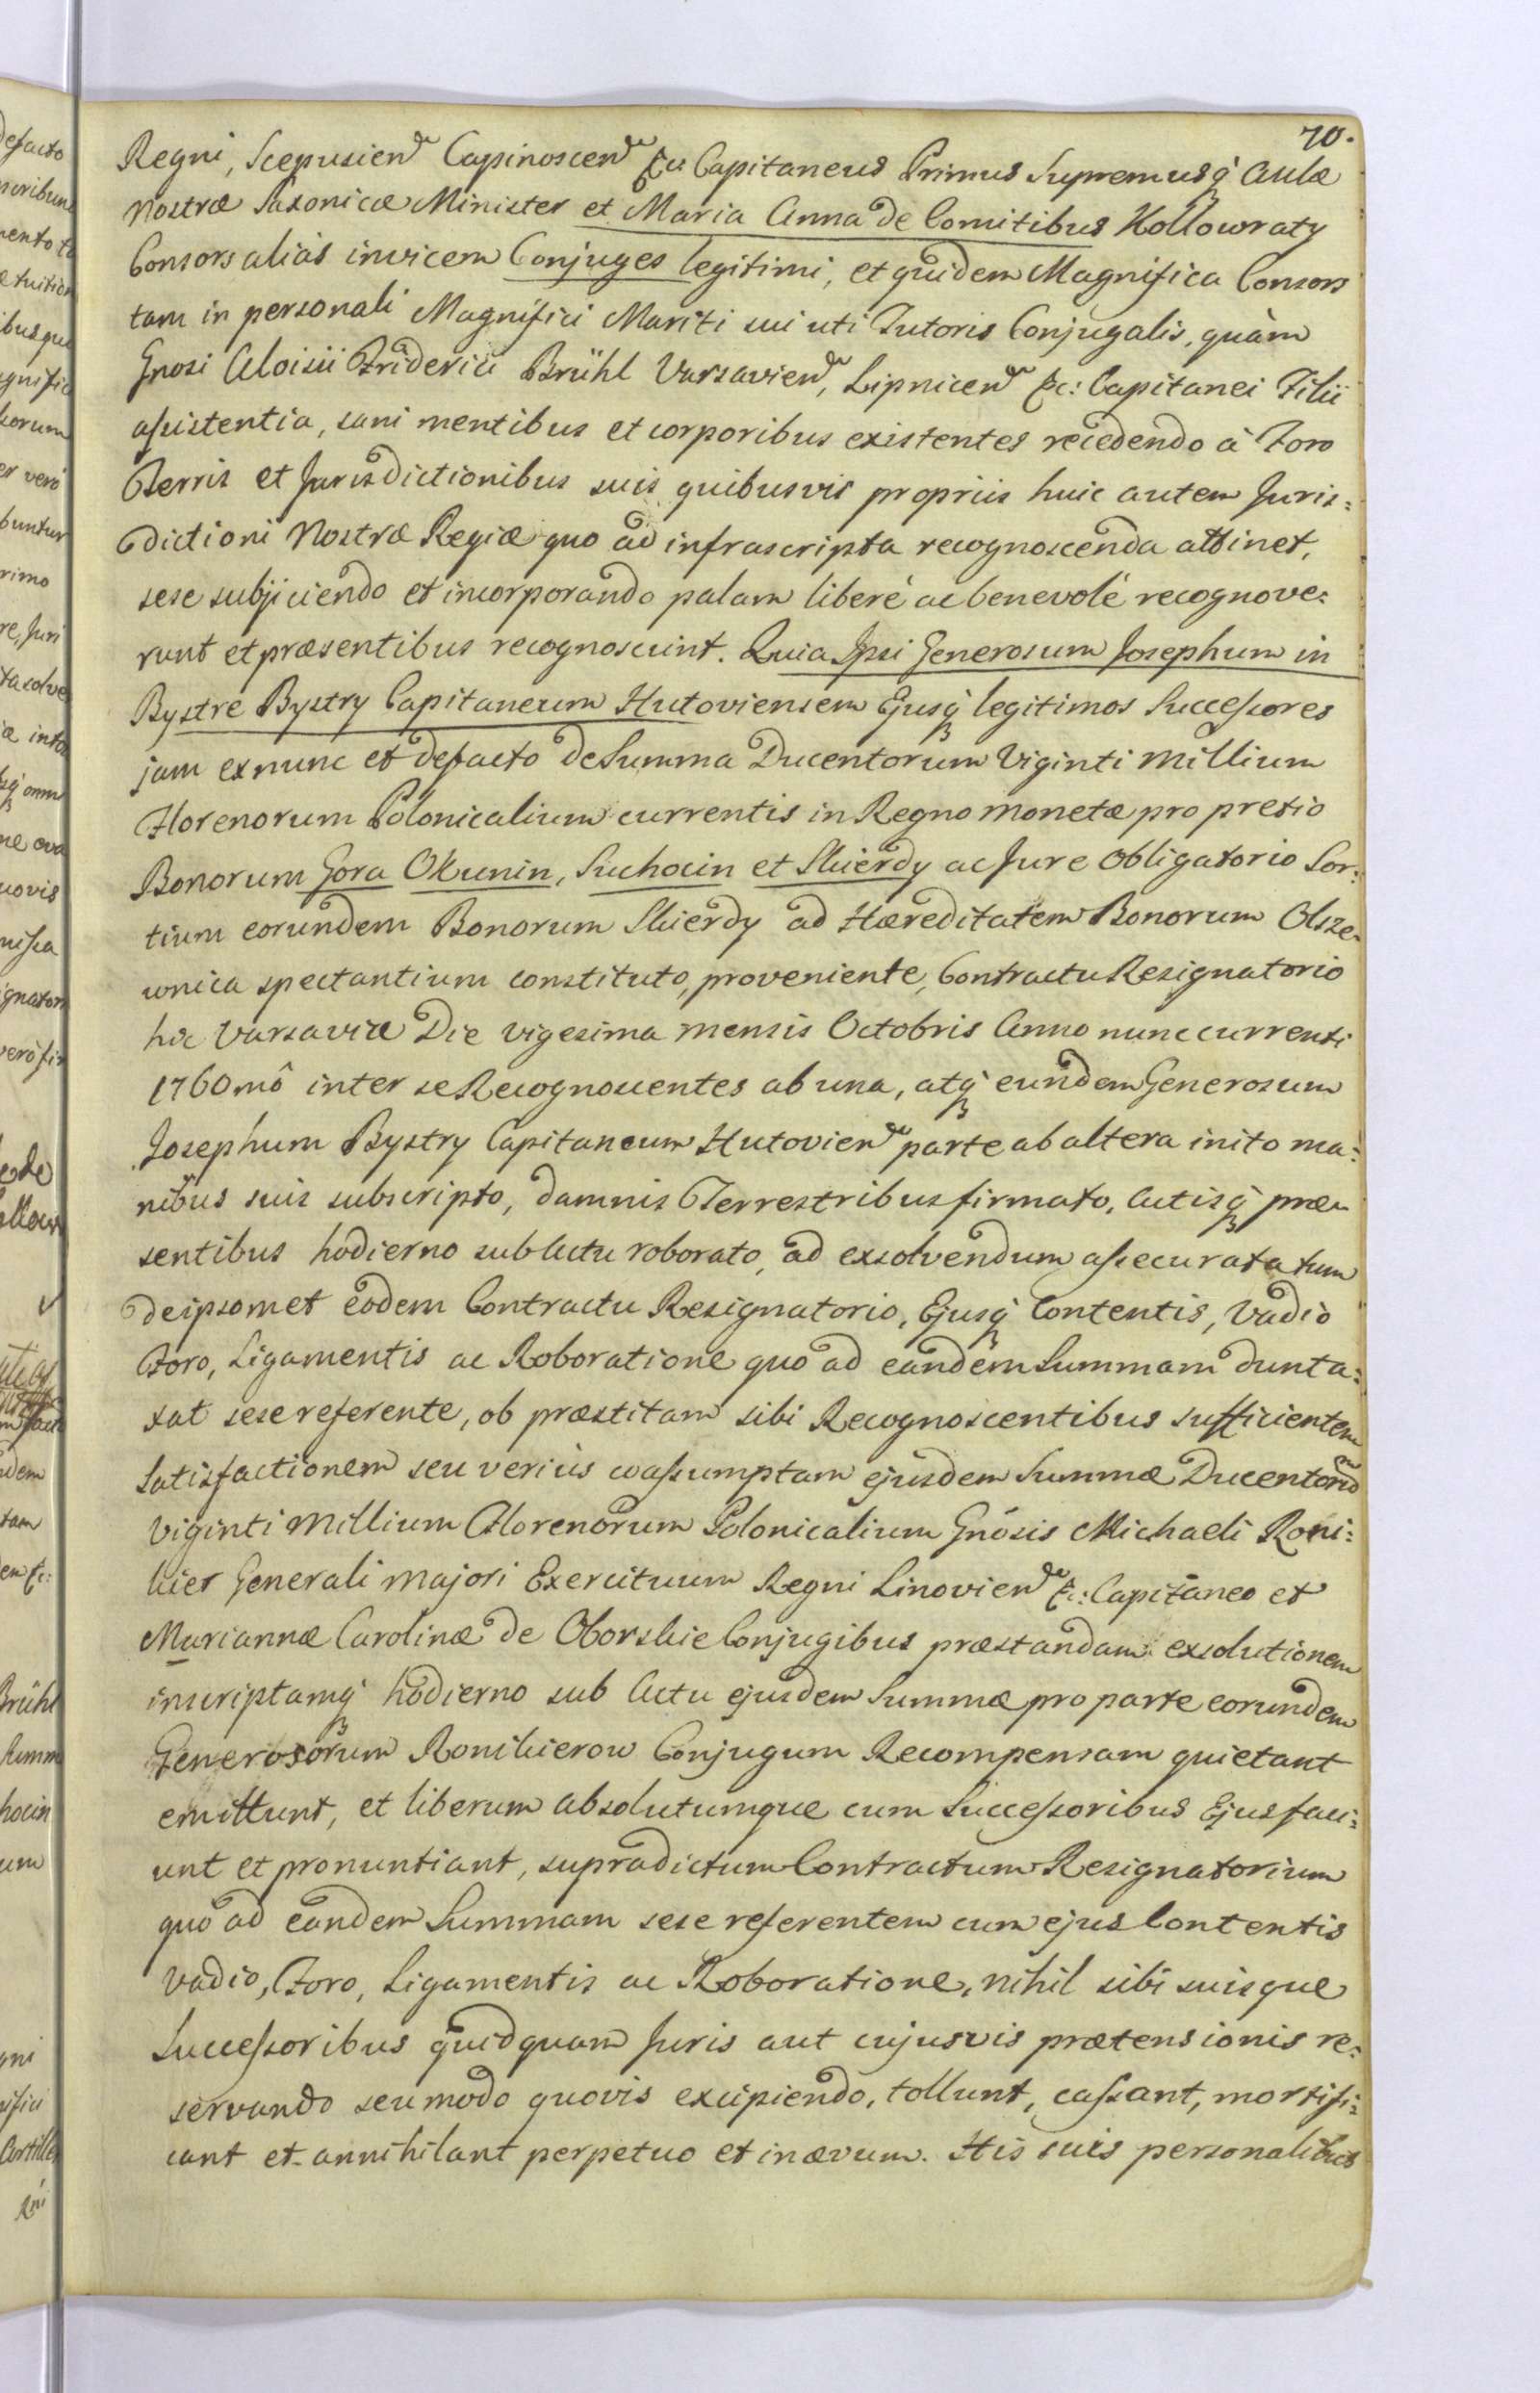 70.
Regni, Scepusien Capinoscen &c: Capitaneus Primus Supremusq Aulæ
Nostræ Saxonicæ Minister et Maria Anna de Comitibus Kollowraty
Consors aliàs invicem Conjuges legitimi, et quidem Magnifica Consors
tam in personali Magnifici Mariti sui uti Tutoris Conjugalis, quàm
Gnosi Aloisii Friderici Brühl Varsavien, Lipnicen &c: Capitanei Filii
assistentia, sani mentibus et corporibus existentes recedendo à Foro
Terris et Jurisdictionibus suis quibusvis propriis huic autem Juris:
dictioni Nostræ Regiæ quo ad infrascripta recognoscenda attinet,
sese subjiciendo et incorporando palam liberè ac benevolè recognove:
runt et præsentibus recognoscunt. Quia Ipsi Generosum Josephum in
Bystre Bystry Capitaneum Hutoviensem Ejusq legitimos Successores
jam ex nunc et defacto de Summa Ducentorum Viginti Millium
Florenorum Polonicalium currentis in Regno monetæ pro pretio
Bonorum Gora Okunin, Suchocin et Skierdy ac Jure Obligatorio Sor:
tium eorundem Bonorum Skierdy ad Hæreditatem Bonorum Olsze:
wnica spectantium constituto, proveniente, Contractu Resignatorio
hic Varsaviæ Die vigesima mensis Octobris Anno nunc currenti
1760mô inter se Recognoscentes ab una, atq eundem Generosum
Josephum Bystry Capitaneum Hutovien parte ab altera inito ma:
nibus suis subscripto, damnis Terrestribus firmato, Actisq præ
sentibus hodierno sub Actu roborato, ad exsolvendum assecurata tum
de ipsomet eodem Contractu Resignatorio, Ejusq Contentis, Vadio
Foro, Ligamentis ac Roboratione quo ad eandem Summam dunta:
xat sese referente, ob præstitam sibi Recognoscentibus sufficientem
Satisfactionem seu veriùs coassumptam ejusdem Summæ Ducentorū
viginti Millium Florenorum Polonicalium Gnósis Michaeli Roni:
kier Generali Majori Exercituum Regni Linovien &c: Capitaneo et
Mariannæ Carolinæ de Oborskie Conjugibus præstandam exsolutionem
inscriptamq hodierno sub Actu ejusdem Summæ pro parte eorundem
Generosorum Ronikierow Conjugum Recompensam quietant
emittunt, et liberum absolutumque cum Successoribus Ejus faci:
unt et pronuntiant, supradictum Contractum Resignatorium
quo ad eandem Summam sese referentem cum ejus Contentis
Vadio, Foro, Ligamentis ac Roboratione, nihil sibi suisque
Successoribus quidquam Juris aut cujusvis prætensionis re:
servando seu modo quovis excipiendo, tollunt, cassant, mortifi:
cant et annihilant perpetuo et in ævum. His suis personalibus